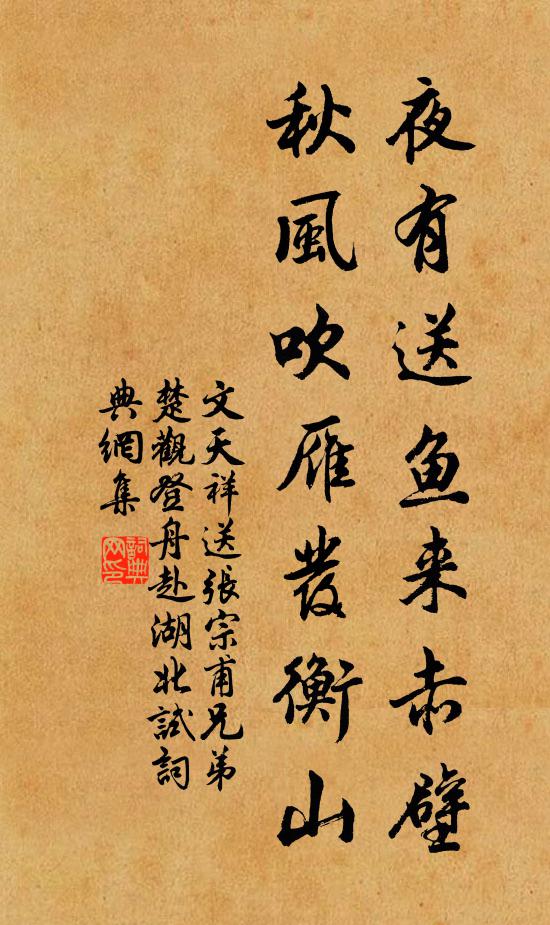 夜有送鱼来赤壁
秋風吹雁發衡山
文天祥送張宗甫兄弟
楚觀登舟赴湖北試詞
典網集
詞典
网印